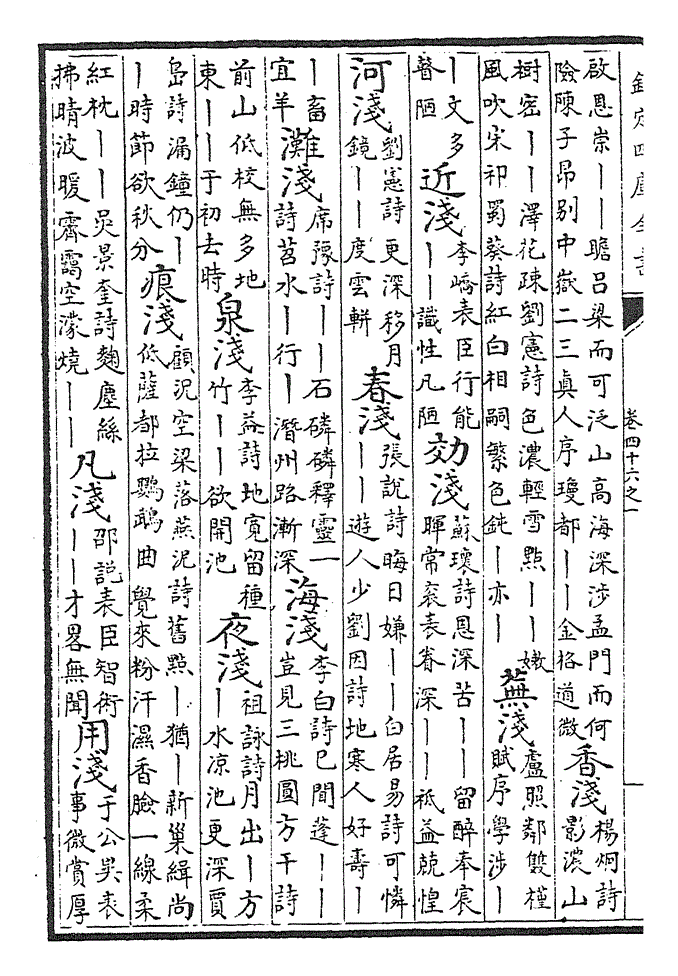 欽定四庫全書
卷四十六之一
啟恩崇丨丨瞻呂梁而可泛山高海深涉孟門而何
險陳子昂別中嶽二三真人序瓊都丨丨金格道微
香淺
楊炯詩
影濃山
樹密丨丨澤花疎劉憲詩色濃輕雪點丨丨嫩
風吹宋祁蜀葵詩紅白相嗣繁色鈍丨亦丨
蕪淺
盧照鄰雙槿
賦序學涉丨
丨文多
瞽陋
近淺
李嶠表臣行能
丨丨識性凡陋
効淺
蘇瓌詩恩深苦丨丨留醉奉宸
暉常袞表眷深丨丨祗益兢惶
河淺
劉憲詩更深移月
鏡丨丨度雲軿
春淺
張說詩晦日嫌丨丨白居易詩可憐
丨丨遊人少劉因詩地寒人好壽丨
丨畜
宜羊
灘淺
席豫詩丨丨石磷磷釋靈一
詩苕水丨行丨潛州路漸深
海淺
李白詩已聞蓬丨丨
豈見三桃圓方干詩
前山低校無多地
東丨丨于初去時
泉淺
李益詩地寬留種
竹丨丨欲開池
夜淺
祖詠詩月出丨方
丨水涼池更深賈
島詩漏鐘仍丨
丨時節欲秋分
痕淺
顧況空梁落燕泥詩舊點丨猶丨新巢緝尚
低薩都拉鸚鵡曲覺來粉汗濕香臉一線柔
紅枕丨丨吳景奎詩麴塵絲
拂晴波暖霽靄空濛燒丨丨
凡淺
邵説表臣智術
丨丨才畧無聞
用淺
于公異表
事微賞厚